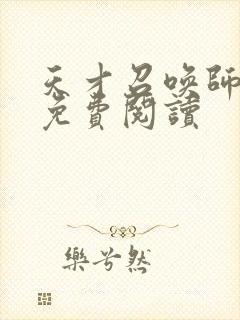 天才召喚師
免費閱讀
樂兮然